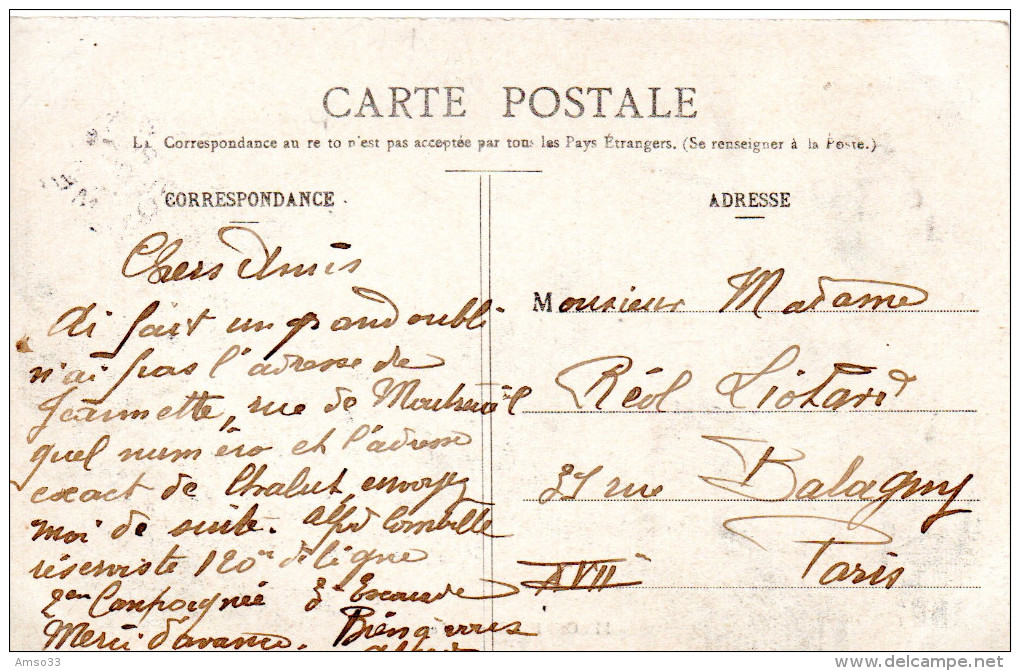 CARTE POSTALE
La Correspondance au recto n'est pas acceptée par tous les Pays Étrangers. (Se renseigner à la Poste.)
CORRESPONDANCE
Chers Amis
Ai fait un grand oubli.
n'ai pas l'adresse de
Jeannette, rue de Montreuil
quel numéro et l'adresse
exact de Chalut envoyez
moi de suite. Alfred
réserviste 120e de ligne
2em Compagnie 3e Escouade
Merci d'avance.
ADRESSE
Monsieur Madame
Réol Liotard
rue Balagny
Paris
XVII
Amso33
www.delcampe.net